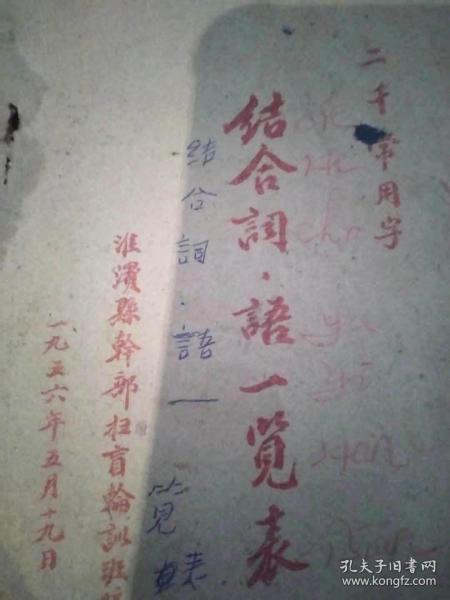 二千常用字
结合詞·語一覧表
结合詞·語一
覧表
淮濱縣幹部扫盲輪訓班
一九五六年五月十九日
孔夫子旧书网
www.kongfz.com